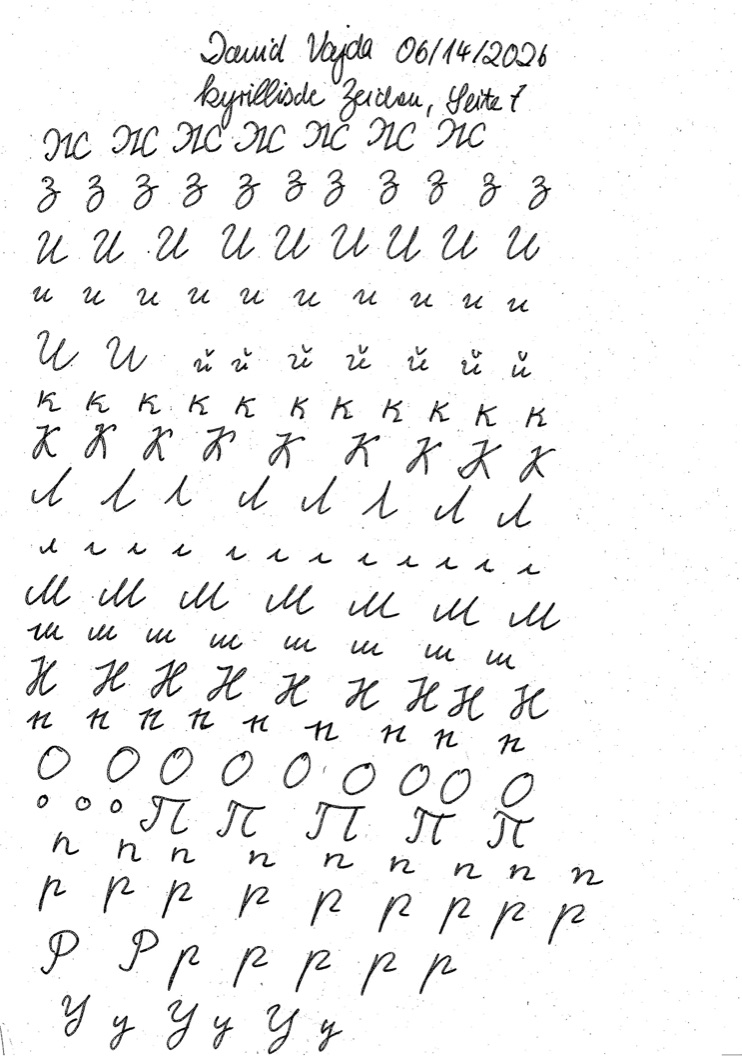 David Vajda 06/14/2026
kyrillische Zeichen, Seite 1
Ж Ж Ж Ж Ж Ж Ж
З З З З З З З З З З З
И И И И И И И И И
и и и и и и и и и и
И И й й й й й й й
к к к к к к к к к к к
К К К К К К К К К
Л Л Л Л Л Л Л Л
л л л л л л л л л л л л
М М М М М М М
ш ш ш ш ш ш ш ш
Н Н Н Н Н Н Н Н Н
н н н н н н н н н
О О О О О О О О О
о о о П П П П П
п п п п п п п п п
р р р р р р р р р
Р Р р р р р р
У у У у У у